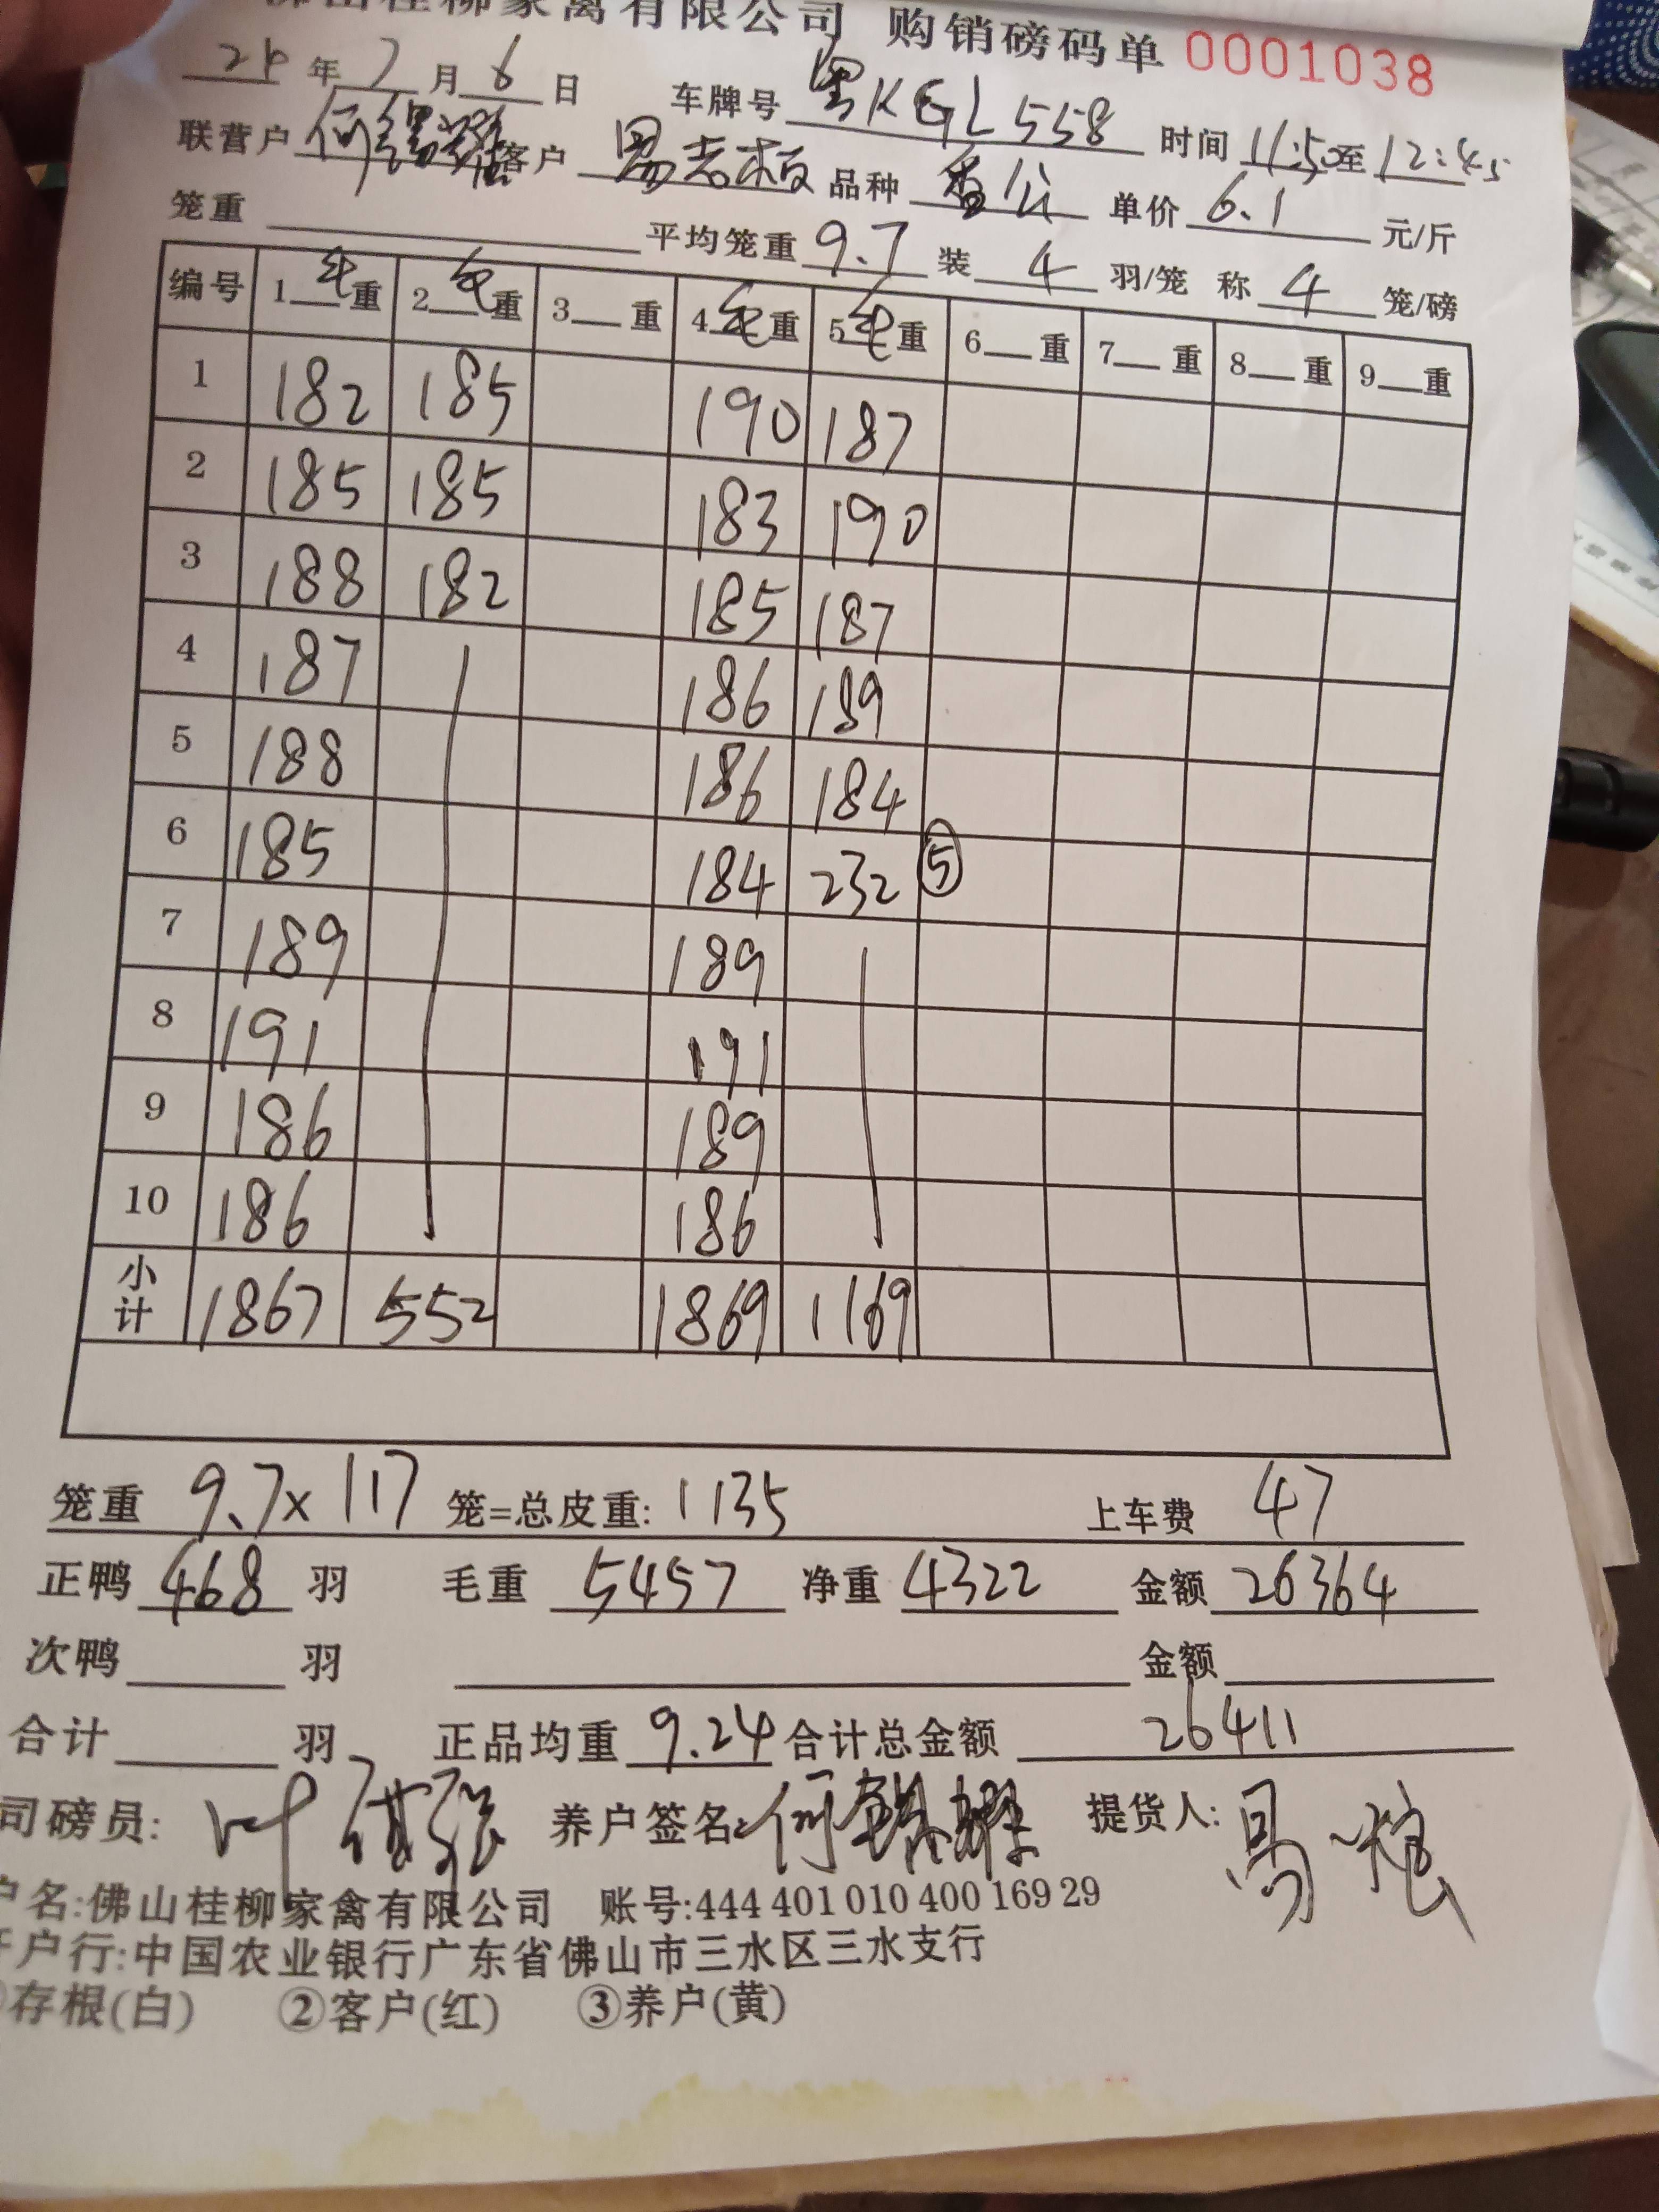 佛山桂柳家禽有限公司 购销磅码单 0001038
24 年 7 月 6 日 车牌号 粤KGL558 时间 11:50 至 12:45
联营户 何锦 客户 易志 品种 公 单价 6.1 元/斤
笼重 平均笼重 9.7 装 4 羽/笼 称 4 笼/磅
编号 1 毛重 2 毛重 3 重 4 毛重 5 毛重 6 重 7 重 8 重 9 重
1 182 185 190 187
2 185 185 183 190
3 188 182 185 187
4 187 186 189
5 188 186 184
6 185 184 232 ⑤
7 189 189
8 191 191
9 186 189
10 186 186
小计 1867 552 1869 1169
笼重 9.7×117 笼=总皮重: 1135 上车费 47
正鸭 468 羽 毛重 5457 净重 4322 金额 26364
次鸭 羽 金额
合计 羽 正品均重 9.24 合计总金额 26411
司磅员: 叶 养户签名: 何 提货人: 易
户名:佛山桂柳家禽有限公司 账号:444 401 010 400 169 29
开户行:中国农业银行广东省佛山市三水区三水支行
存根(白) ②客户(红) ③养户(黄)